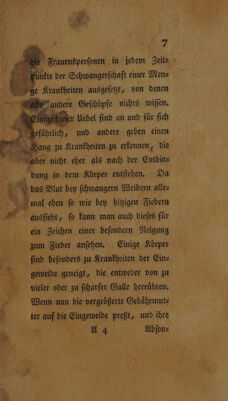 7
die Frauenspersonen in jedem Zeit-
punkte der Schwangerschaft einer Men-
ge Krankheiten ausgesetzt, von denen
alle andere Geschöpfe nichts wissen.
Einige dieser Uebel sind an und für sich
gefährlich, und andere geben einen
Hang zu Krankheiten zu erkennen, die
aber nicht eher als nach der Entbin-
dung in dem Körper entstehen. Da
das Blut bey schwangern Weibern alle-
mal eben so wie bey hitzigen Fiebern
aussieht, so kann man auch dieses für
ein Zeichen einer besondern Neigung
zum Fieber ansehen. Einige Körper
sind besonders zu Krankheiten der Ein-
geweide geneigt, die entweder von zu
vieler oder zu scharfer Galle herrühren.
Wenn nun die vergrößerte Gebährmut-
ter auf die Eingeweide preßt, und ihre
A 4 Abson-